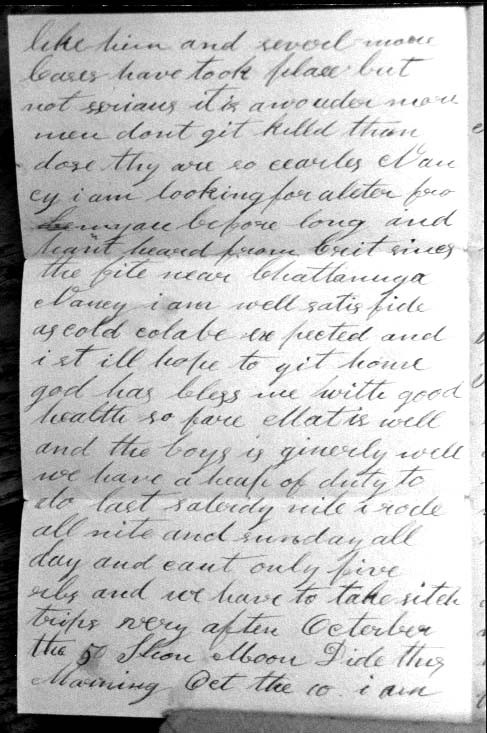 like him and severl more
cases have took place but
not serious it is a wonder more
men dont git killd than
dose thy are so cearles Nan
cy i am looking for a leter fro
you before long and
hant heard from sines
the fite near Chattanuga
Nancy i am well satisfide
as cold colabe expected and
i still hope to git home
god has bless me with good
health so fare Mat is well
and the boys is ginerly well
we have a heap of duty to
do last saterdy nite i rode
all nite and sunday all
day and eaut only five
and we have to take sitch
trips very aften Octerber
the 5 Moon Dide this
Morning Oct the 10 i am